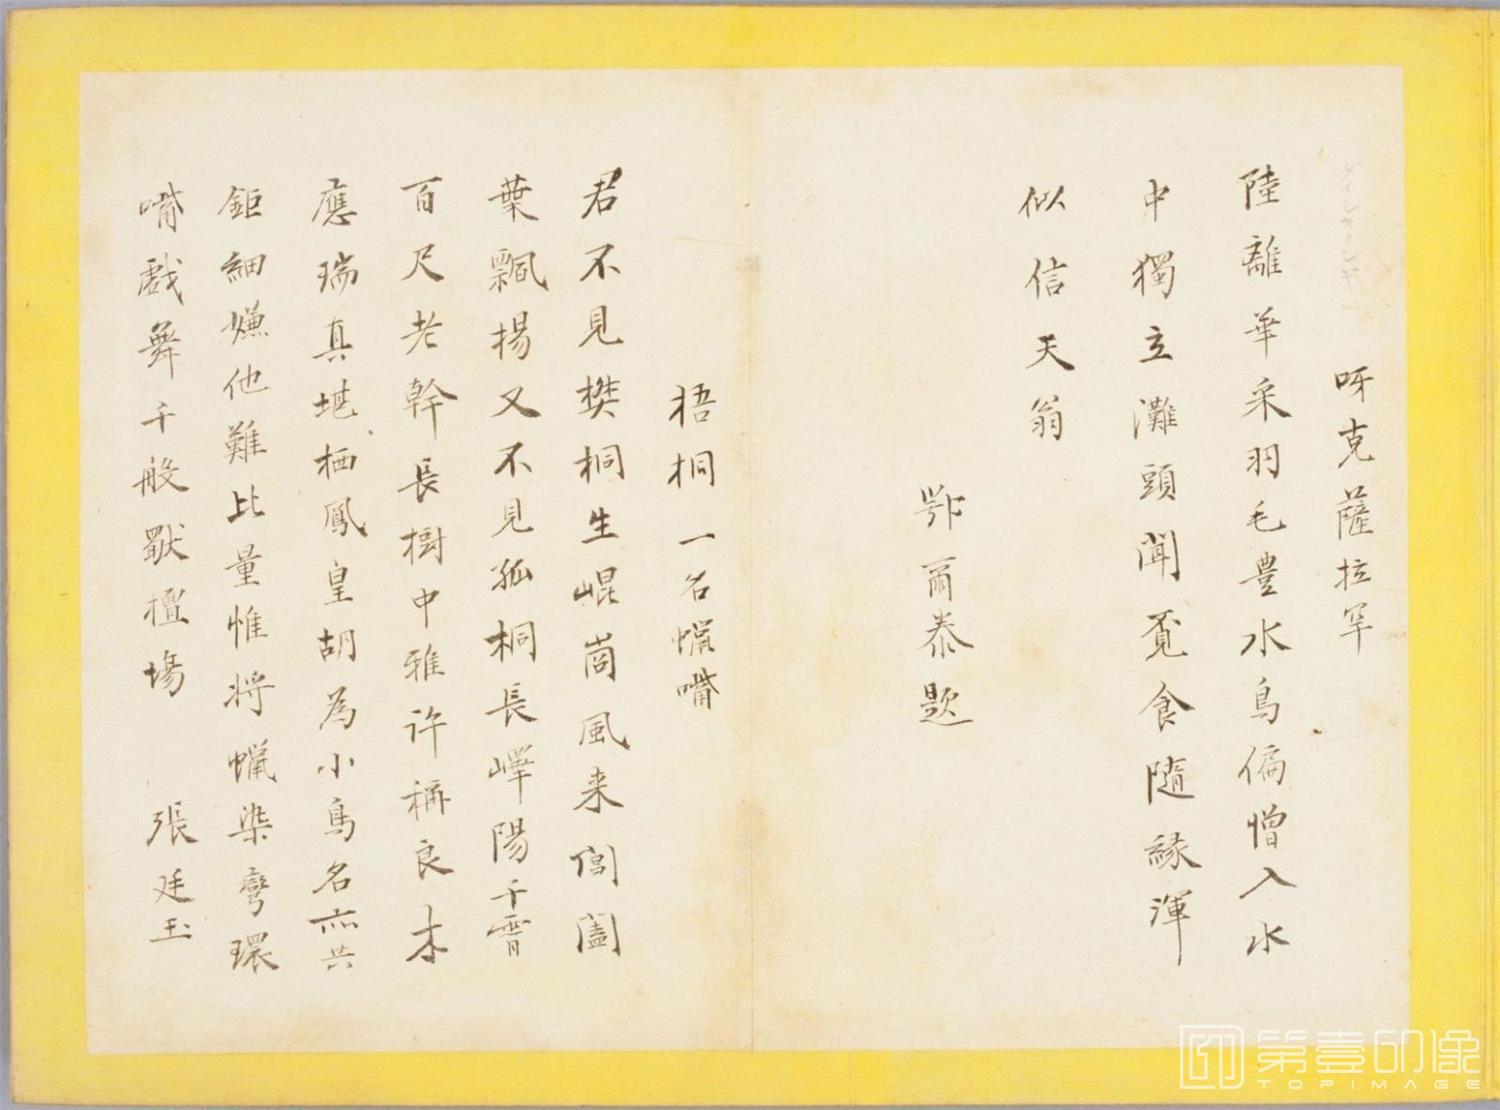 呀克薩拉罕
陸離華采羽毛豊水鳥偏憎入水
中獨立灘頭閒覓食隨緣渾
似信天翁
鄂爾泰題
梧桐一名蠟嘴
君不見樊桐生崐崗風来閶闔
葉飄揚又不見孤桐長嶧陽干霄
百尺老幹長樹中雅許稱良木
應瑞真堪栖鳳皇胡為小鳥名亦共
鉅細嫌他難比量惟将蠟染彎環
嘴戲舞千般獸檀場
張廷玉
第壹印像
TOPIMAGE